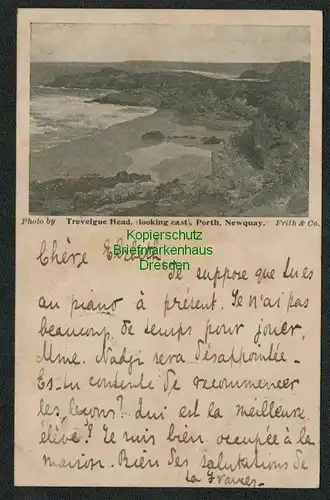 Photo by Trevelgue Head, (looking east), Porth, Newquay. Frith & Co.
Kopierschutz
Briefmarkenhandel
Dresden
Chère
Je suppose que tu es
au piano à présent. Je n'ai pas
beaucoup de temps pour jouer,
Mme. Nadji sera désappointée -
Es-tu contente de recommencer
les leçons? Qui est la meilleure
élève? Je suis bien occupée à la
maison. Bien des salutations de
la